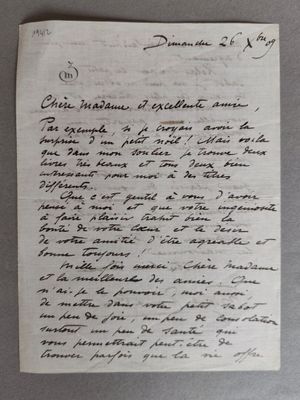 1942
Dimanche 26 Xbre 09
Chère Madame et excellente amie,
Par exemple, si je croyais avoir la
surprise d'un petit noël ! Mais voila
que dans mon soulier je trouve deux
livres très beaux et tous deux bien
interessants pour moi à des titres
différents.
Que c'est gentil à vous d'avoir
pensé à moi et que votre ingeniosité
à faire plaisir trahit bien la
bonté de votre cœur et le desir
de votre amitié d'être agreable et
bonne toujours !
Mille fois merci, Chère Madame
et la meilleure des amies. Que
n'ai-je le pouvoir, moi aussi
de mettre dans votre petit sabot
un peu de joie, un peu de consolation
surtout un peu de santé qui
vous permettrait peut-être de
trouver parfois que la vie offre